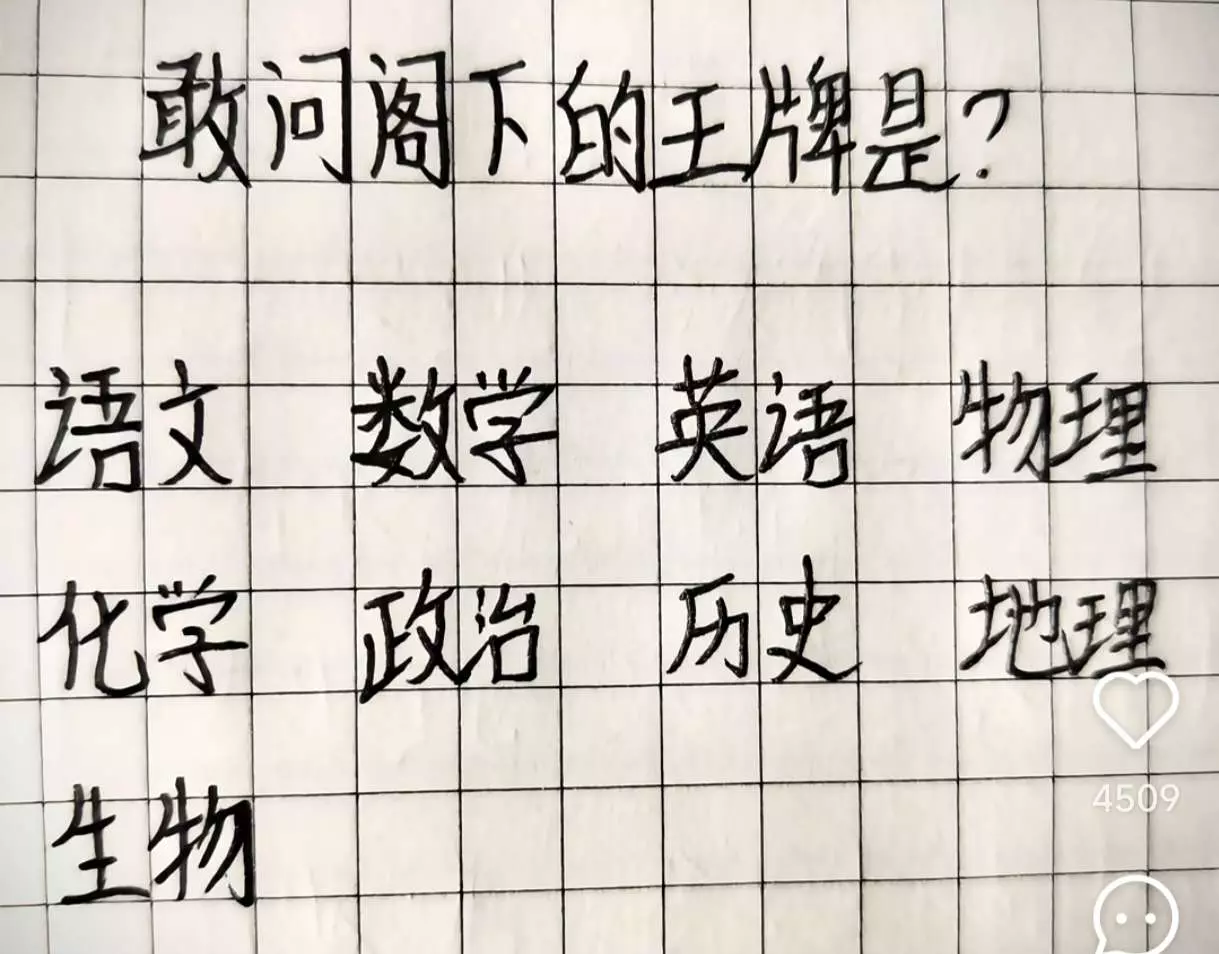 敢问阁下的王牌是?
语文 数学 英语 物理
化学 政治 历史 地理
4509
生物